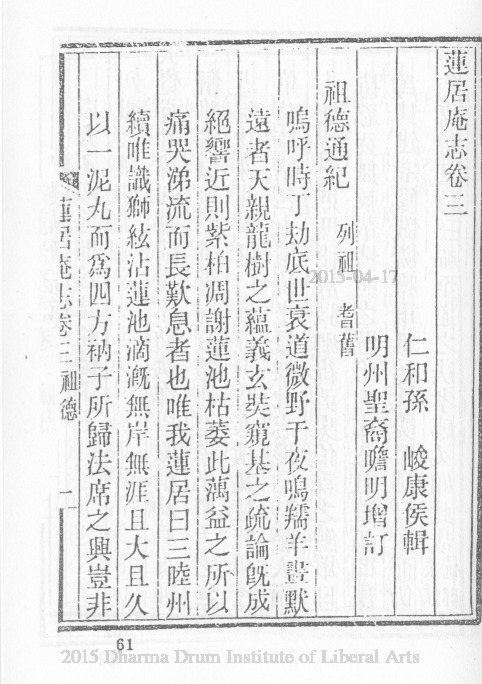 蓮居庵志卷三
仁和孫 峻康侯輯
明州聖裔瞻明增訂
祖德通紀 列祖 耆舊
嗚呼時丁劫底世衰道微野干夜鳴羺羊晝默
遠者天親龍樹之蘊義玄奘窺基之疏論旣成
絕響近則紫柏凋謝蓮池枯萎此蕅益之所以
痛哭涕流而長歎息者也唯我蓮居曰三陸州
續唯識獅絃沾蓮池滴漑無岸無涯且大且久
以一泥丸而爲四方衲子所歸法席之興豈非
蓮居庵志卷三 祖德 一
2015-04-17
61
2015 Dharma Drum Institute of Liberal Arts